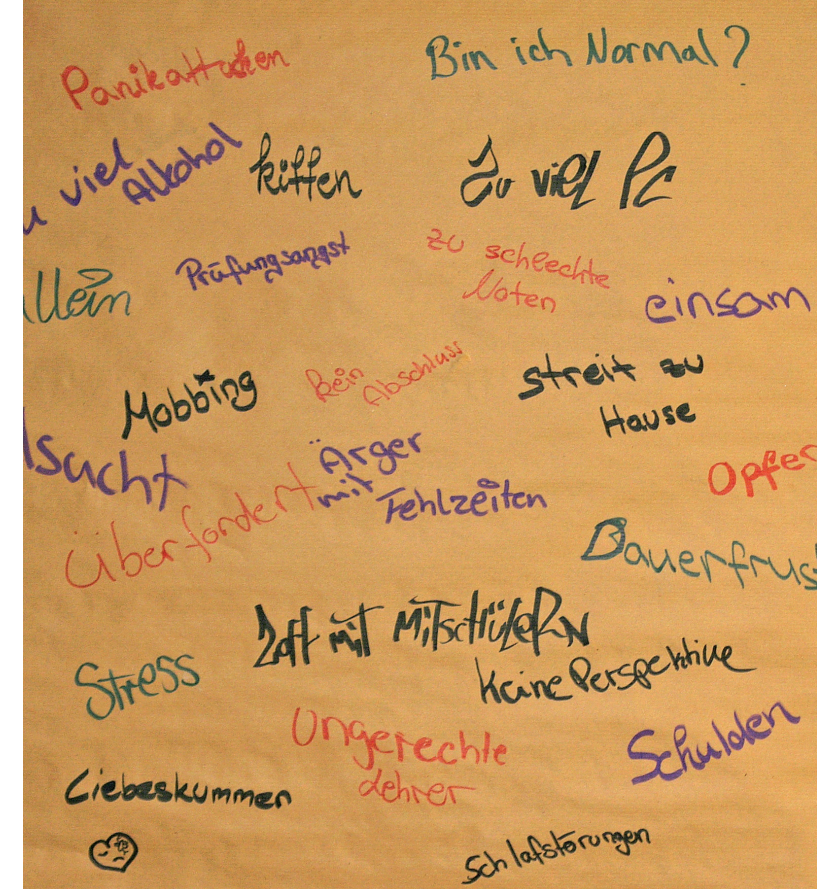 Panikattacken
Bin ich Normal?
u viel
Alkohol
kiffen
Zu viel Pc
Prüfungsangst
zu schlechte
Noten
llein
einsam
Mobbing
Kein
Abschluss
streit zu
Hause
lsucht
Ärger
mit
Fehlzeiten
Überfordert
Opfer
Dauerfrust
Zoff mit Mitschülern
Keine Perspektive
Stress
Ungerechte
Lehrer
Schulden
Liebeskummer
Schlafstörungen